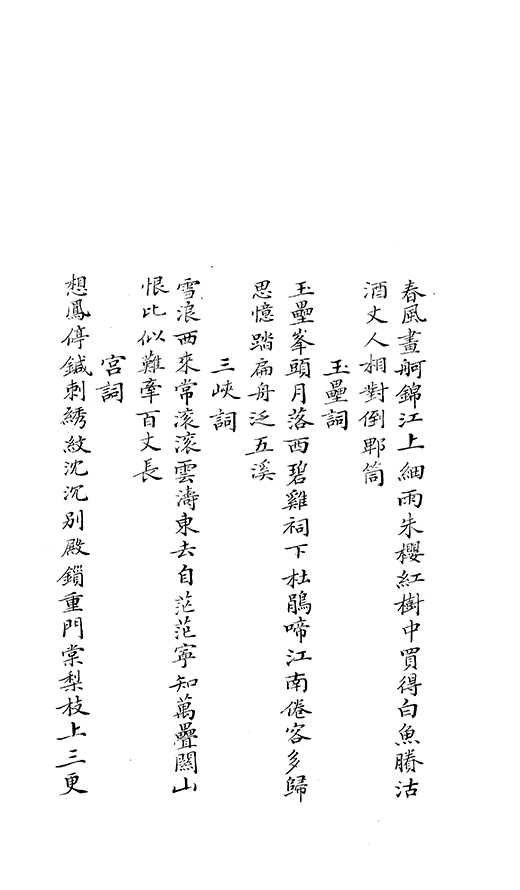 春風畫舸錦江上細雨朱櫻紅樹中買得白魚賸沽
酒丈人相對倒郫筒
玉壘詞
玉壘峯頭月落西碧雞祠下杜鵑啼江南倦客多歸
思憶踏扁舟泛五溪
三峽詞
雪浪西來常滚滚雲濤東去自茫茫寧知萬疊關山
恨比似難牽百丈長
宮詞
想鳳停鍼刺綉紋沈沉别殿鎖重門棠梨枝上三更